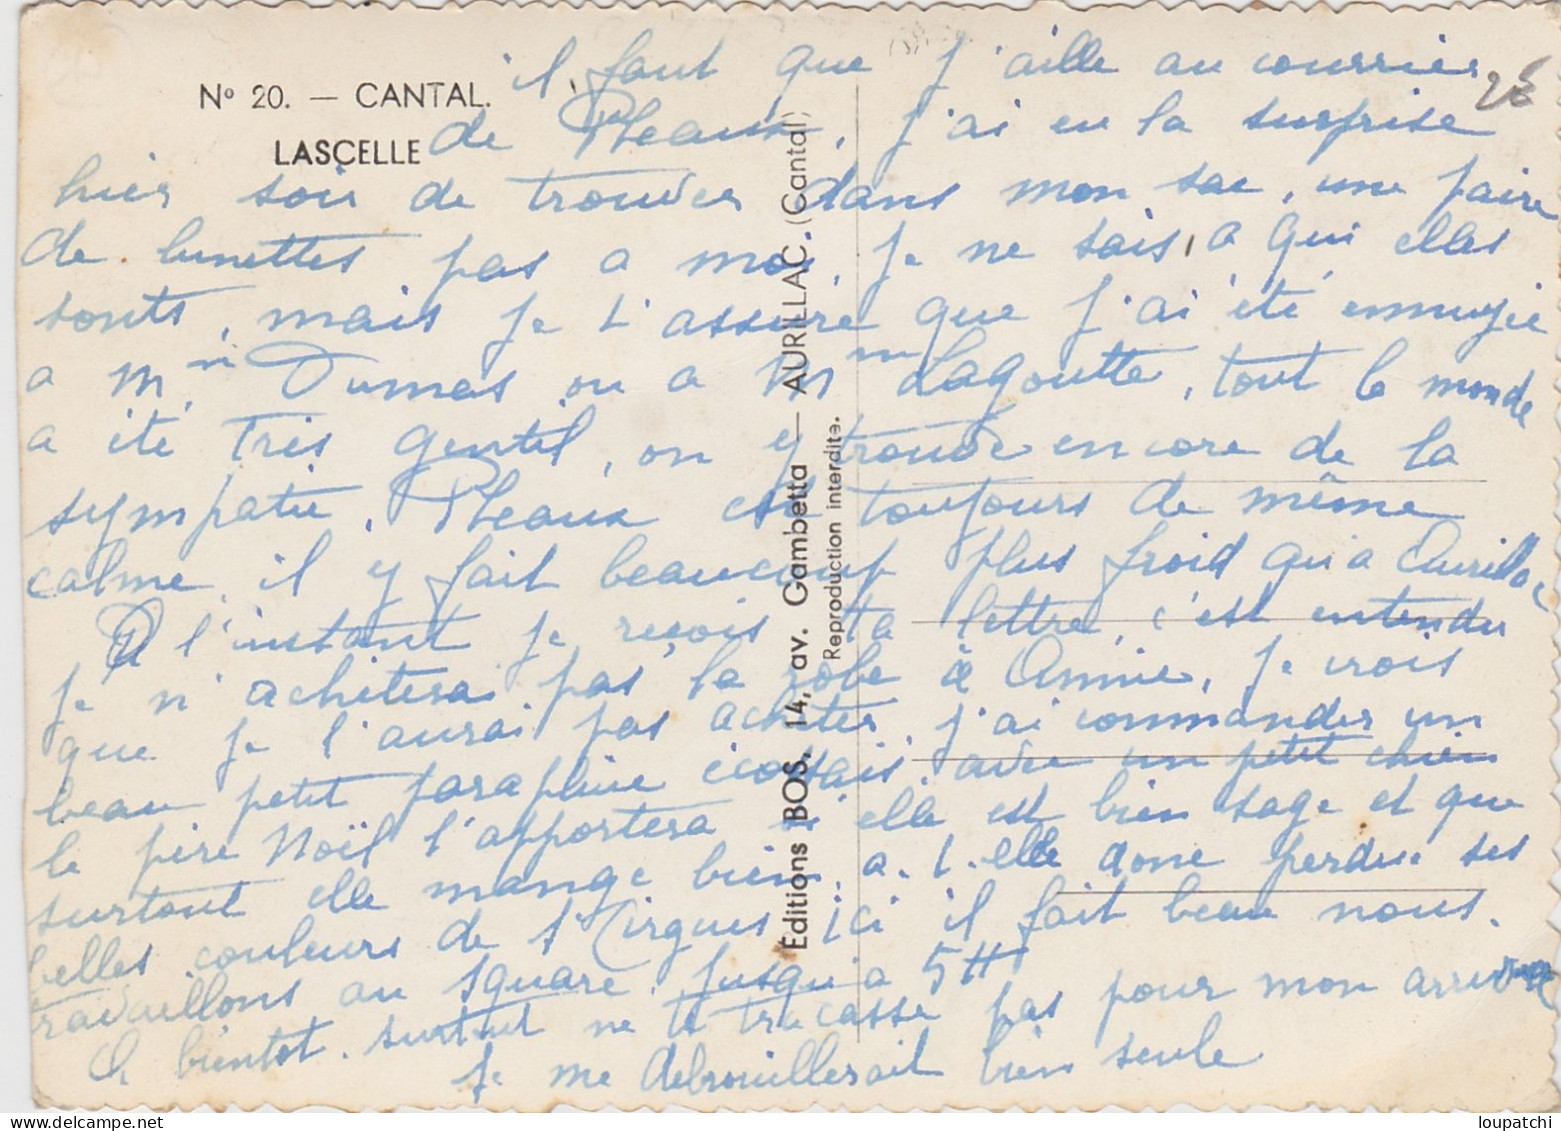 N° 20. — CANTAL.
LASCELLE
il faut que j'aille au courrier
de Pleaux, j'ai eu la surprise
hier soir de trouver dans mon sac, une paire
de lunettes pas a moi, je ne sais a qui elles
sonts, mais je t'assure que j'ai été ennuyée
a Mm Dumas ou a Mm Lagoutte, tout le monde
a été très gentil, on y trouve encore de la
sympatie, Pleaux est toujours de même
calme, il y fait beaucoup plus froid qu'a Aurillac
A l'instant je reçois ta lettre, c'est entendu
je n'achèterai pas la robe à Annie, je crois
que je l'aurai pas acheter, j'ai commander un
beau petit parapluie écossais, avec un petit chien
le père Noël l'apportera si elle est bien sage et que
surtout elle mange bien, a-t-elle donc perdue ses
belles couleurs de St Cirgues, ici il fait beau nous.
travaillons au square. jusqu'a 5H
A bientot. surtout ne te tracasse pas pour mon arrivée
je me debrouillerait bien seule
Éditions BOS, 14, av. Gambetta — AURILLAC. (Cantal)
Reproduction interdite.
28
loupatchi